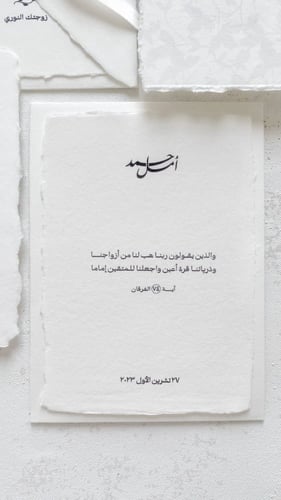 زوجتك النوري
أمل حمد
والذين يقولون ربنا هب لنا من أزواجنا
وذرياتنا قرة أعين واجعلنا للمتقين إماما
آية ٧٤ الفرقان
٢٧ تشرين الأول ٢٠٢٣